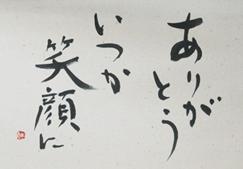 ありが
とう
いつか
笑顔に